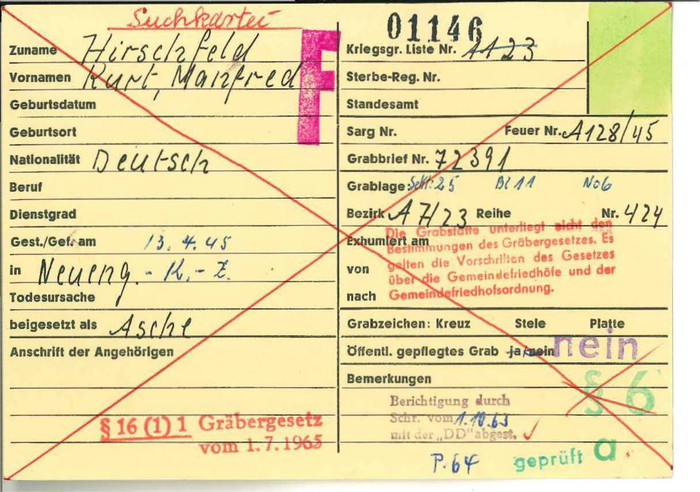 Suchkartei
Zuname Hirschfeld
Vornamen Kurt, Manfred
F
Geburtsdatum
Geburtsort
Nationalität Deutsch
Beruf
Dienstgrad
Gest./Gef. am 13.4.45
in Neueng.-K.-Z.
Todesursache
beigesetzt als Asche
Anschrift der Angehörigen
§ 16 (1) 1 Gräbergesetz
vom 1.7.1965
01146
Kriegsgr. Liste Nr. 1123
Sterbe-Reg. Nr.
Standesamt
Sarg Nr. Feuer Nr. A128/45
Grabbrief Nr. 72391
Grablage: Sch: 25 Bl 11 No6
Bezirk A7/23 Reihe Nr. 424
Die Grabstätte unterliegt nicht den
Exhumiert am Bestimmungen des Gräbergesetzes. Es
von gelten die Vorschriften des Gesetzes
über die Gemeindefriedhöfe und der
nach Gemeindefriedhofsordnung.
Grabzeichen: Kreuz Stele Platte
Öffentl. gepflegtes Grab ja/nein nein
Bemerkungen § 6
Berichtigung durch
Schr. vom 1.10.63
mit der „DD" abgest.
P.64 geprüft a